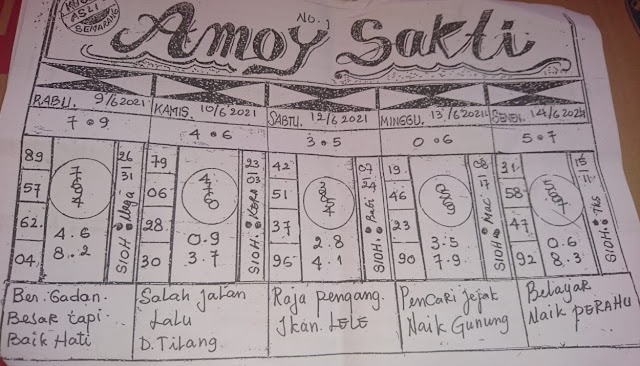 ASLI
SEMARANG
No. 1
Amoy Sakti
RABU. 9/6 2021
KAMIS. 10/6 2021
SABTU. 12/6 2021
MINGGU. 13/6 2021
SENEN. 14/6 2021
7 • 9
4 • 6
3 • 5
0 • 6
5 • 7
89
57
62.
04
4.6
8.2
26
31
SIOH: Naga
79
06
28
30
0.9
3.7
23
03
SIOH: Kera
42
51
37
96
2.8
4.1
SIOH: Babi
19
46
23
90
3.5
7.9
SIOH: Mac
31
58
47
92
0.6
8.3
SIOH: Tks
Ber. Gadan.
Besar tapi
Baik Hati
Salah jalan
Lalu
D. Tilang.
Raja pengang.
Ikan. LELE
Pencari jejak
Naik Gunung
Belayar
Naik PERAHU